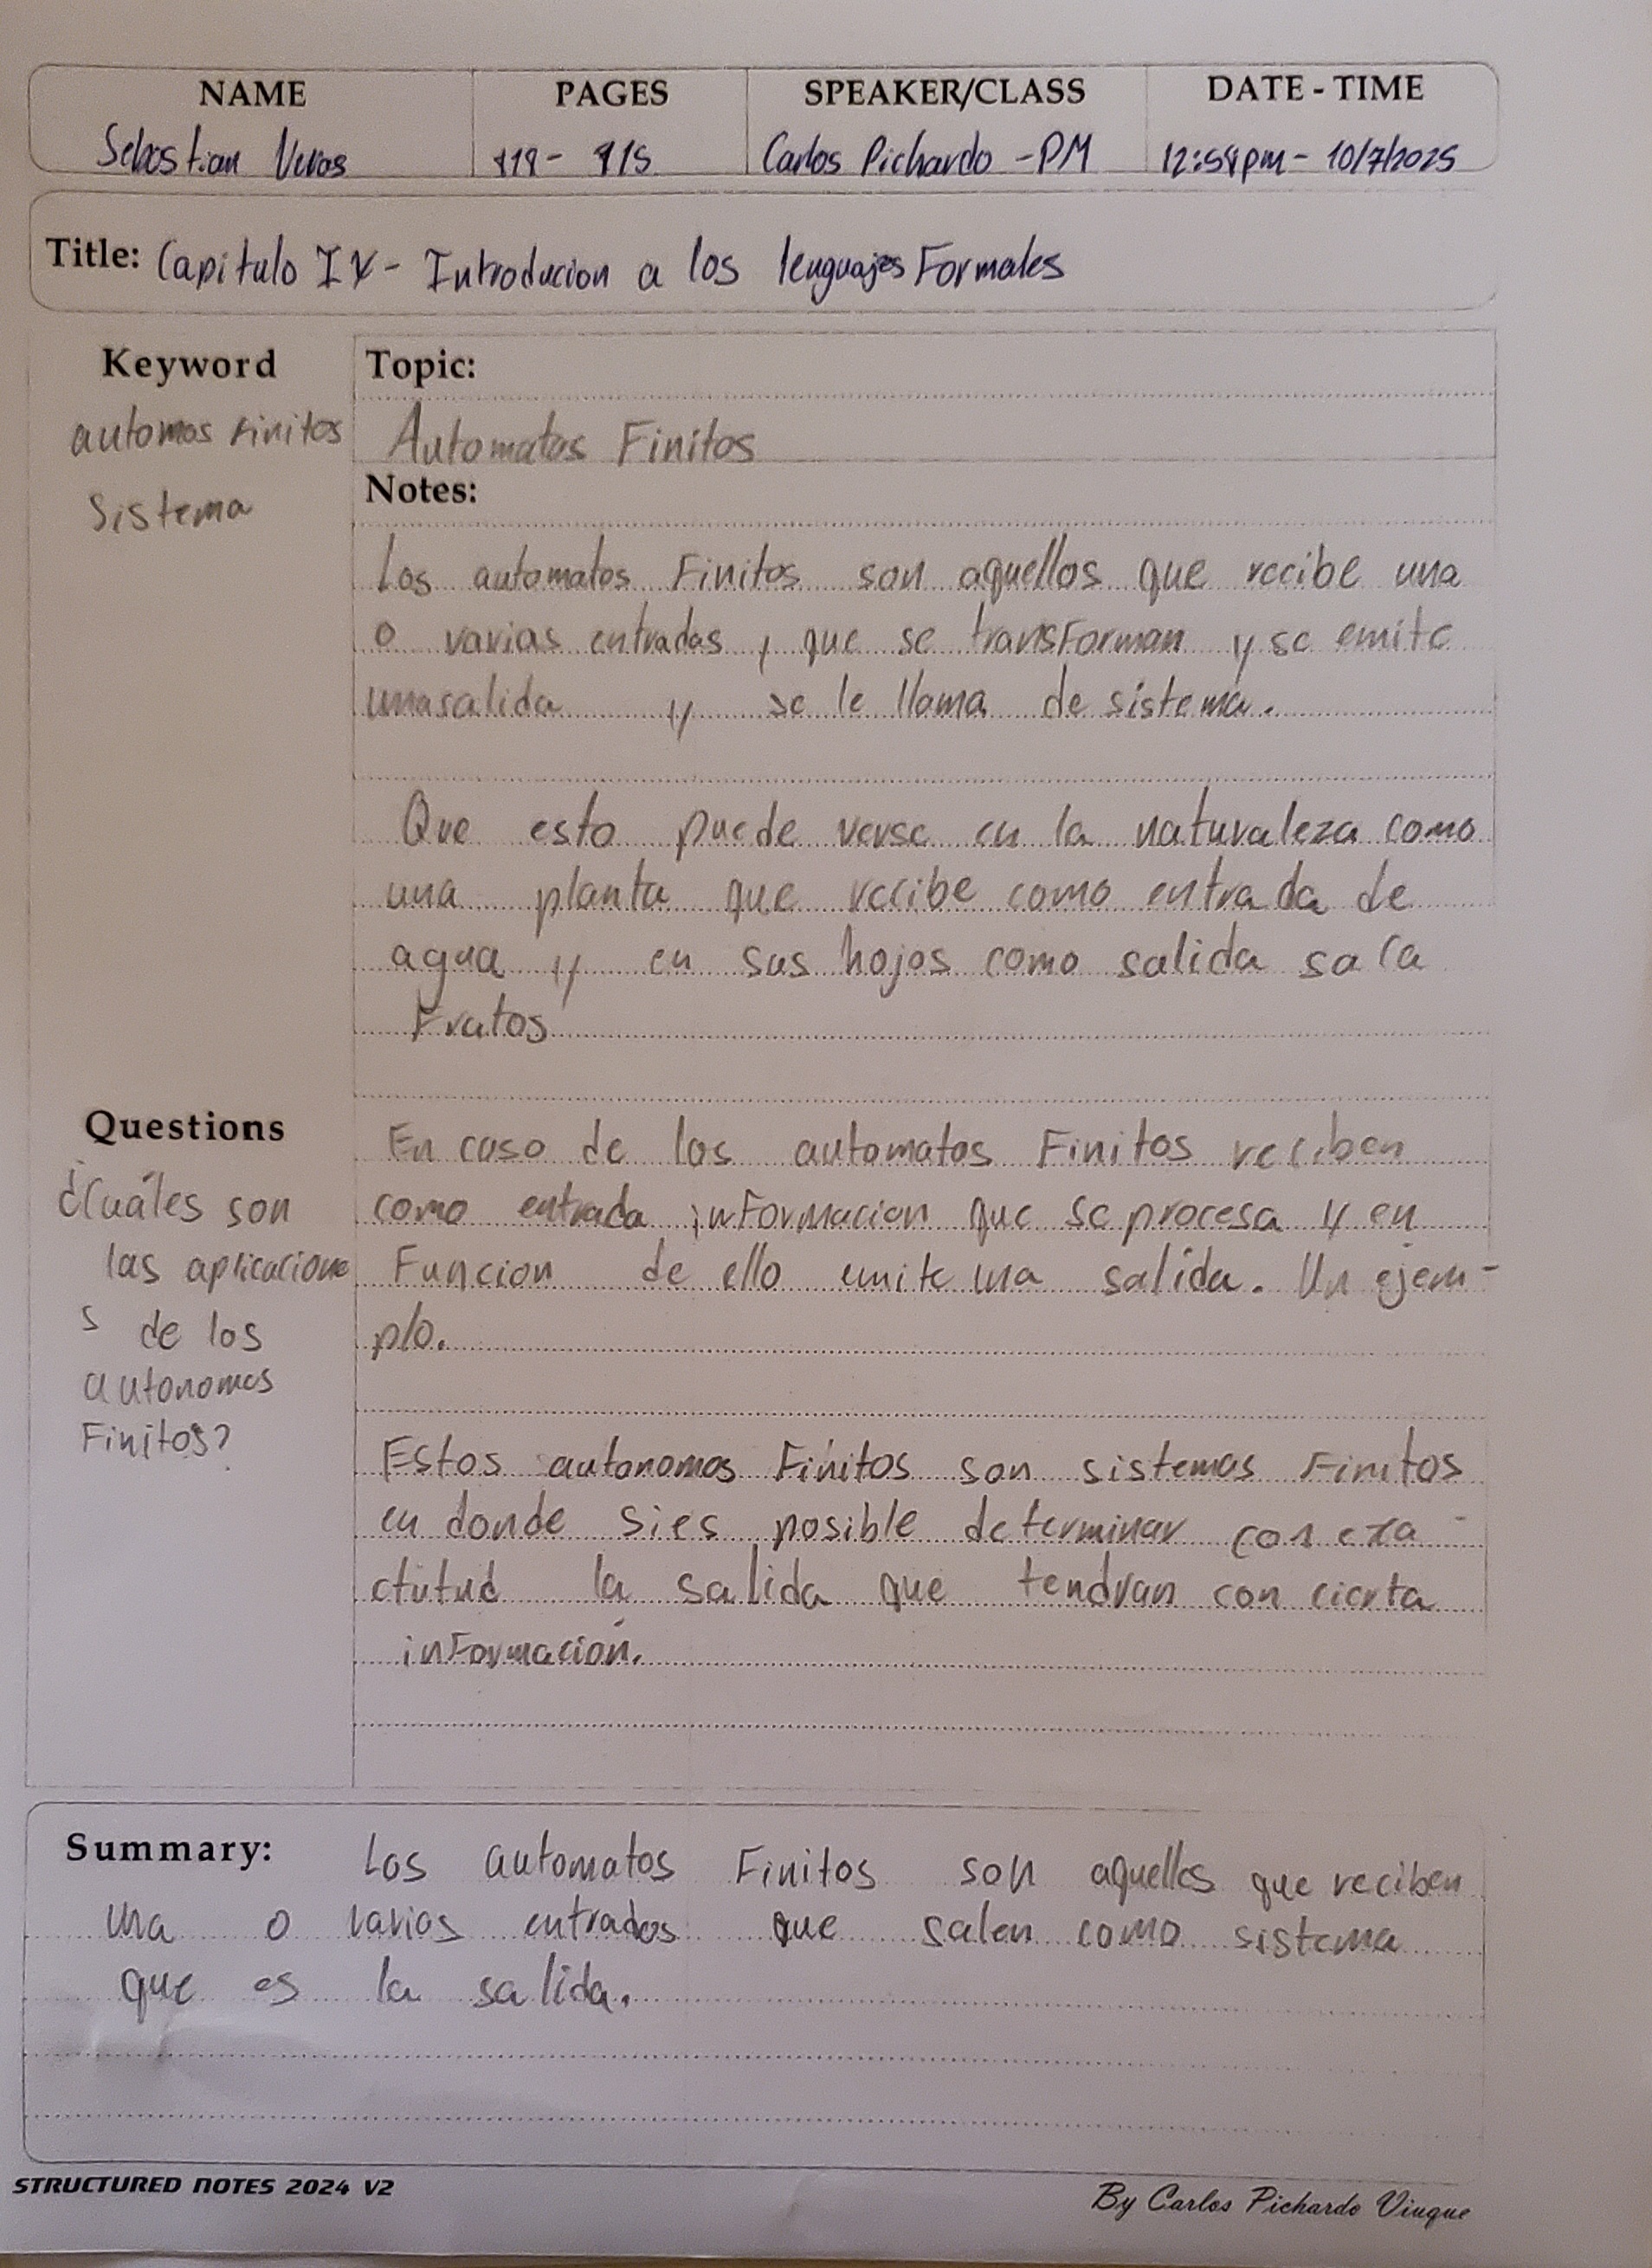 NAME PAGES SPEAKER/CLASS DATE - TIME
Sebastian Veras 119 - 915 Carlos Pichardo - PM 12:54pm - 10/7/2025
Title: Capitulo IV - Introducion a los lenguajes Formales
Keyword
automos Finitos
Sistema
Topic:
Automatas Finitos
Notes:
Los automatos Finitos son aquellos que recibe una
o varias entradas y que se transforman y se emite
una salida y se le llama de sistema.
Que esto puede verse en la naturaleza como
una planta que recibe como entrada de
agua y en sus hojos como salida saca
Frutos
Questions
¿Cuáles son
las aplicacione
s de los
autonomos
Finitos?
En caso de los automatos Finitos reciben
como entrada informacion que se procesa y en
Funcion de ello emite una salida. Un ejem-
plo.
Estos autonomos Finitos son sistemas Finitos
en donde si es posible determinar con exa-
ctutud la salida que tendran con cierta
información.
Summary: Los automatos Finitos son aquellos que reciben
una o varios entrados que salen como sistema
que es la salida.
STRUCTURED NOTES 2024 V2
By Carlos Pichardo Viuque